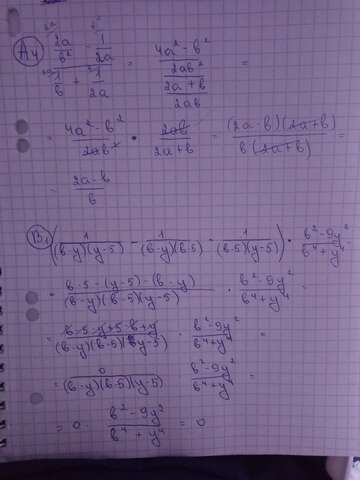 A4 (2a/b² - 1/2a) / (1/b + 1/2a) = ((4a² - b²)/2ab²) / ((2a + b)/2ab) =
= (4a² - b²)/2ab² · 2ab/(2a + b) = (2a - b)(2a + b)/b(2a + b) =
= (2a - b)/b
B1 (1/(b-y)(y-5) - 1/(b-y)(b-5) - 1/(b-5)(y-5)) · (b² - 9y²)/(b⁴ + y⁴)
= (b-5-(y-5)-(b-y))/(b-y)(b-5)(y-5) · (b² - 9y²)/(b⁴ + y⁴)
= (b-5-y+5-b+y)/(b-y)(b-5)(y-5) · (b² - 9y²)/(b⁴ + y⁴) =
= 0/(b-y)(b-5)(y-5) · (b² - 9y²)/(b⁴ + y⁴) =
= 0 · (b² - 9y²)/(b⁴ + y⁴) = 0